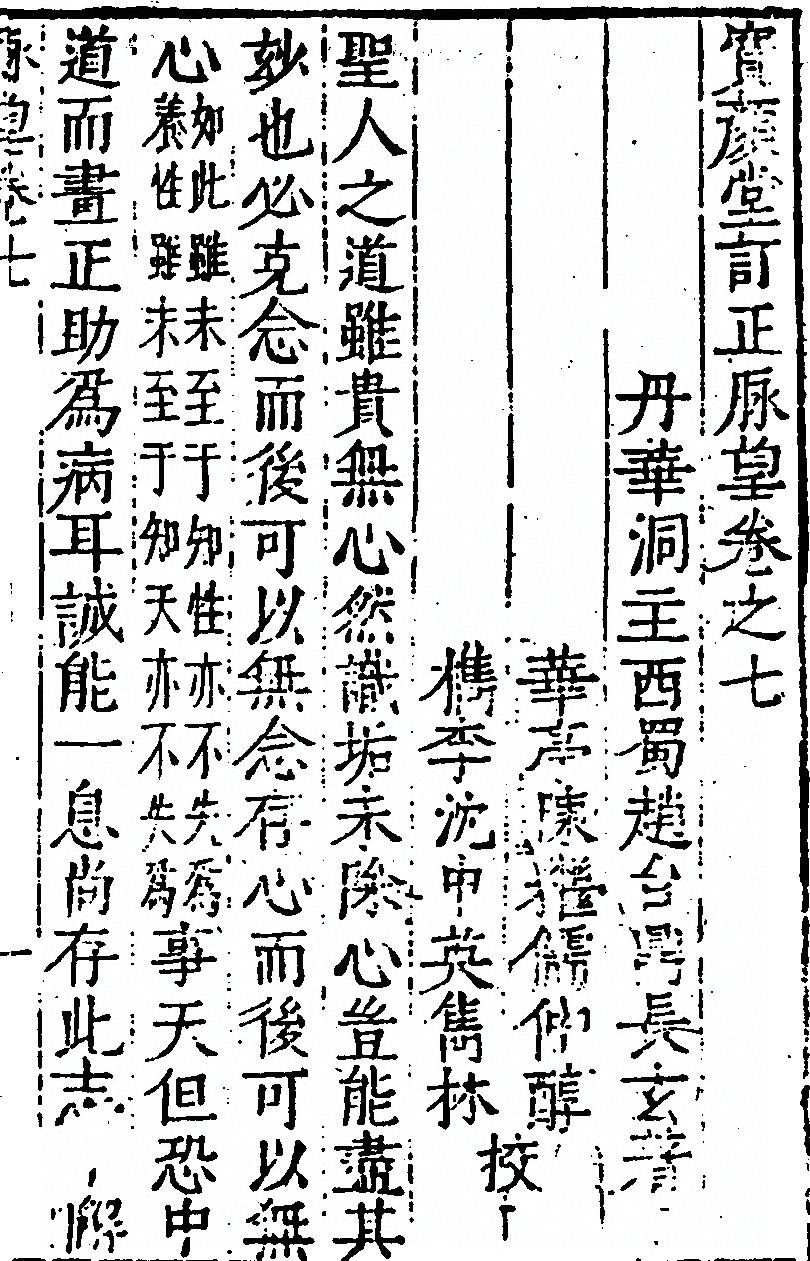 寶顏堂訂正脉望卷之七
丹華洞主西蜀趙台鼎長玄著
華亭陳繼儒仲醇
檇李沈中英雋林
挍
聖人之道雖貴無心然識垢未除心豈能盡其
妙也必克念而後可以無念存心而後可以無
心如此雖未至于知性亦不失為養性雖未至于知天亦不失為事天但恐中
道而畫正助為病耳誠能一息尚存此志 懈
脉望卷七